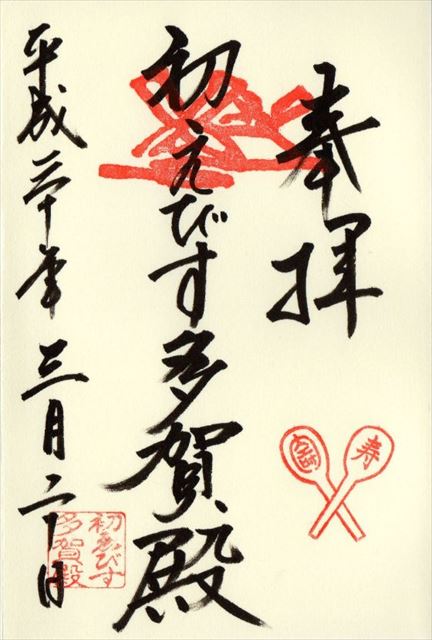 奉拝
初えびす多賀殿
平成二十年三月二十日
寿
初ゑびす
多賀殿